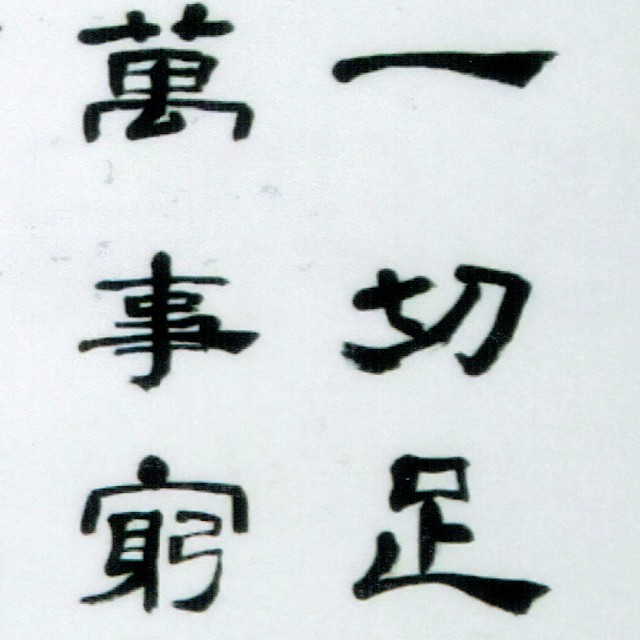 一切足
萬事窮